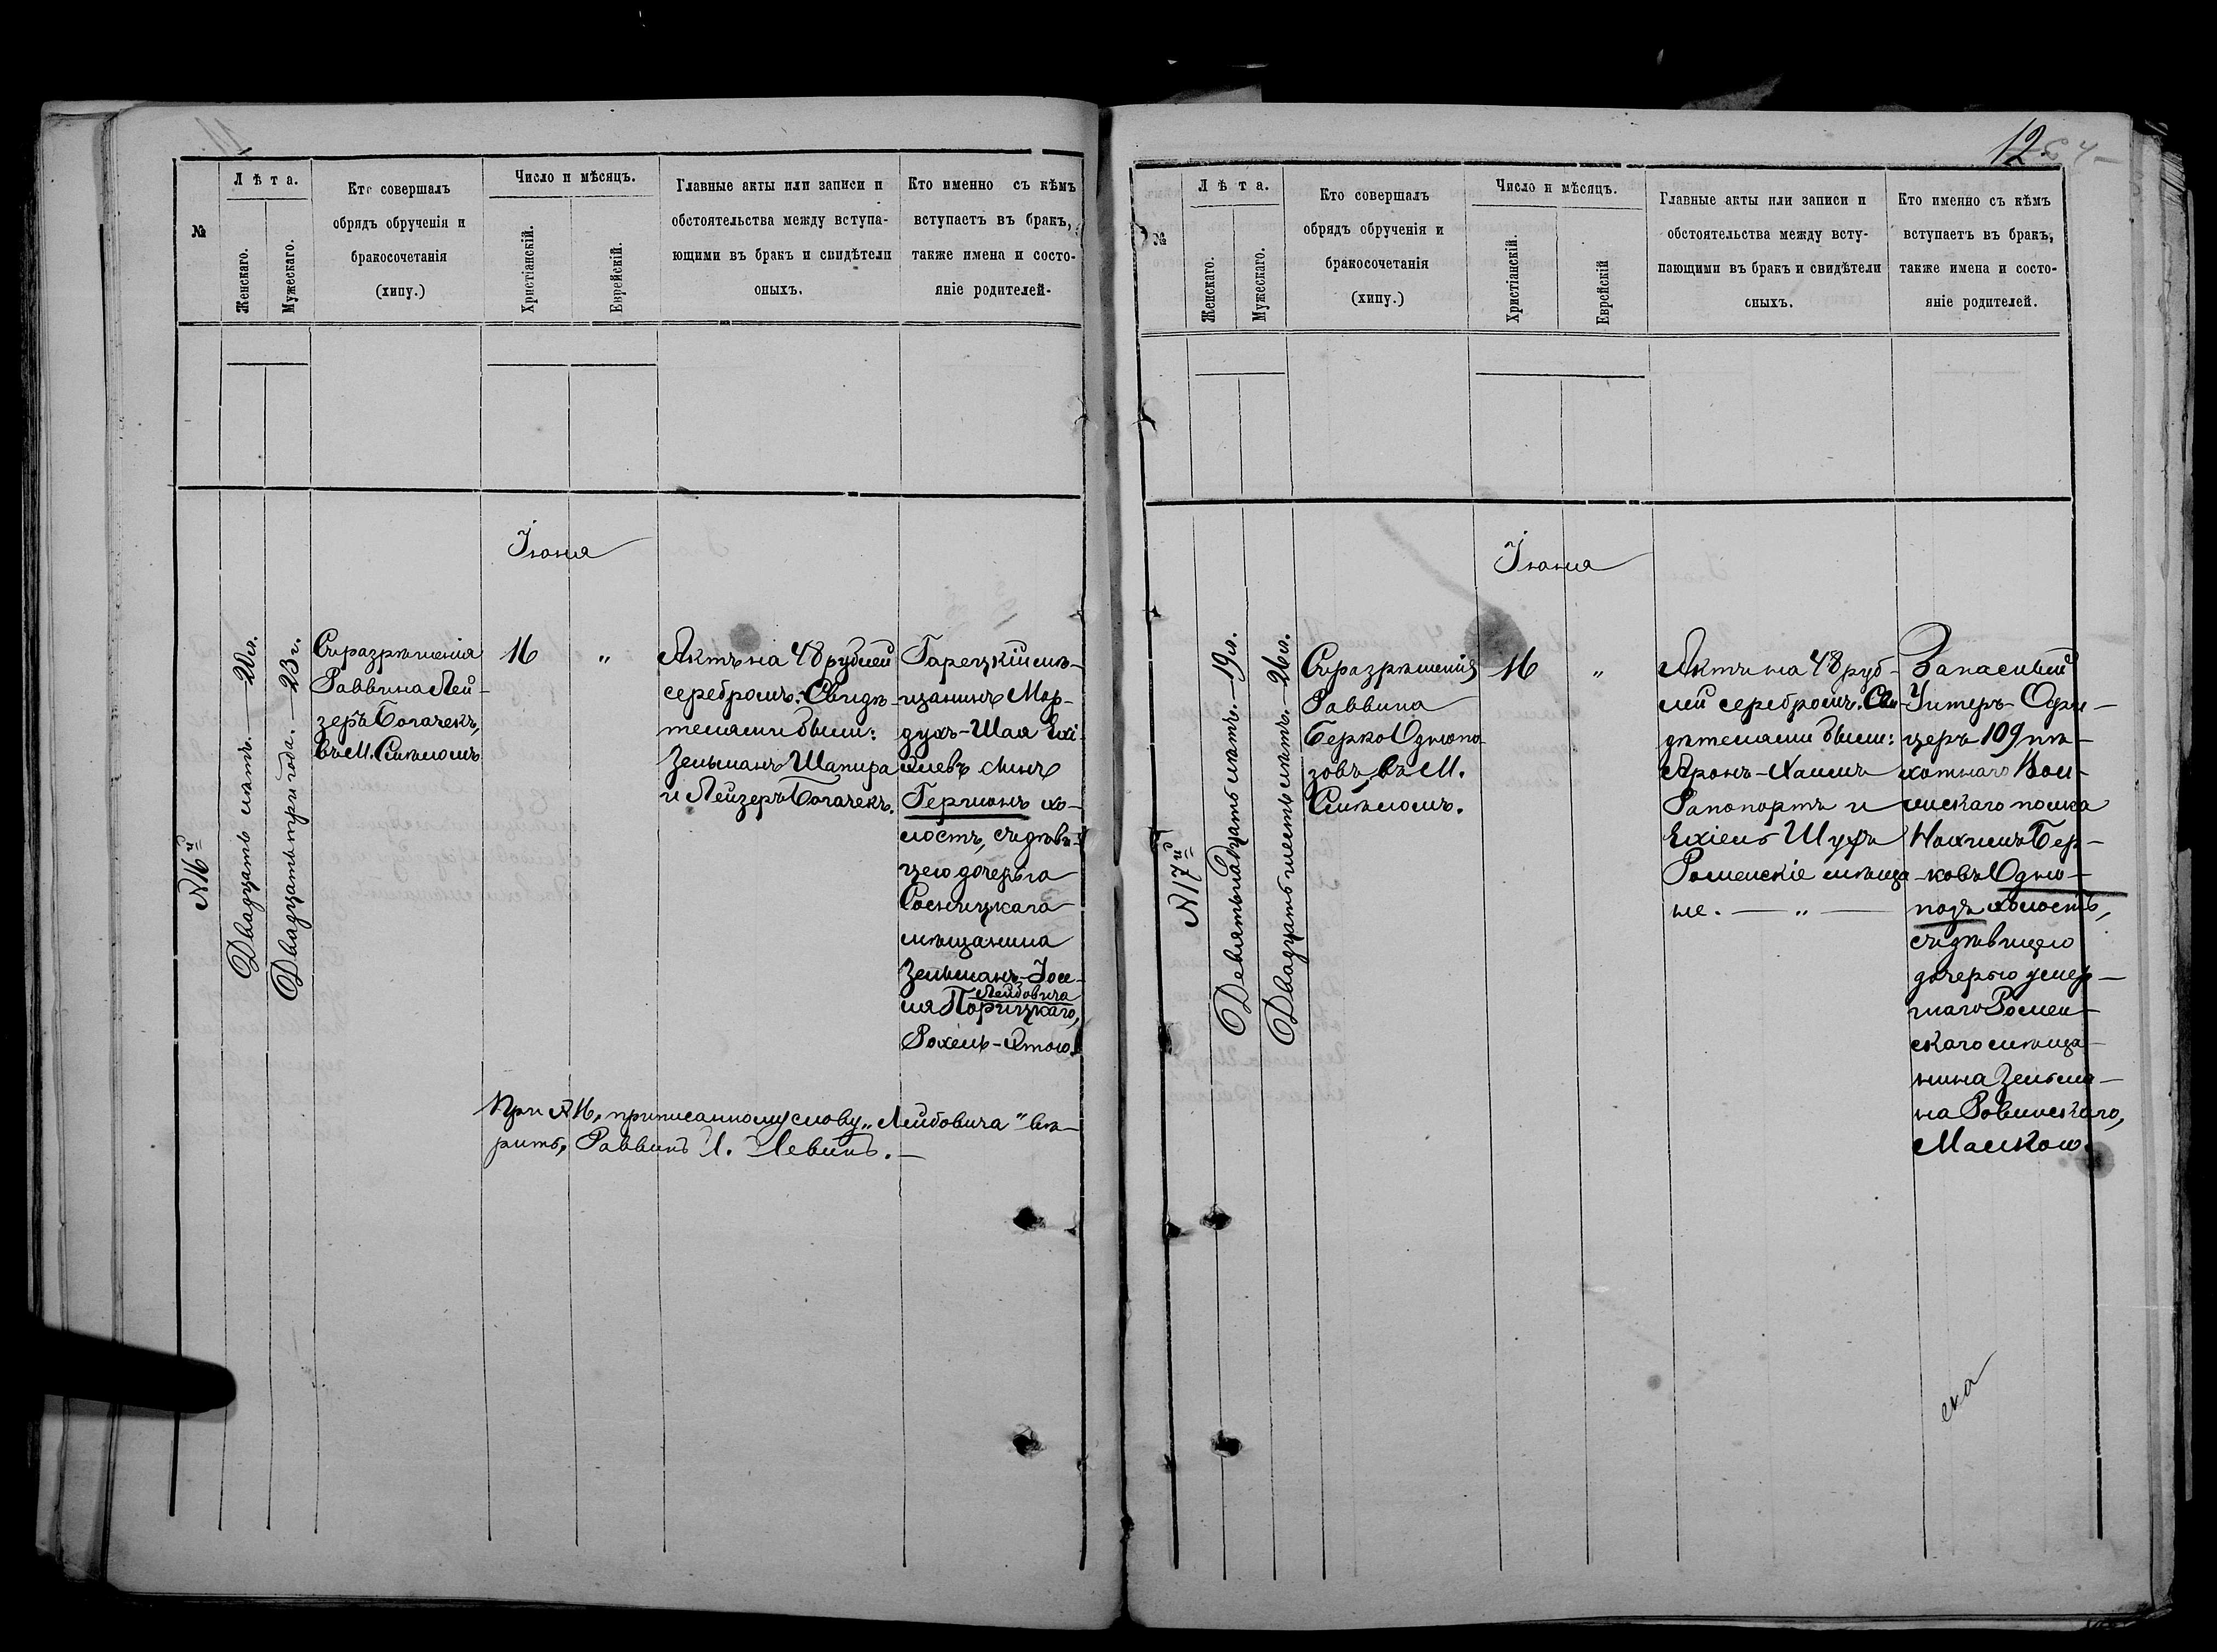 №
Лѣта.
Женскаго.
Мужескаго.
Кто совершалъ
обрядъ обрученія и
бракосочетанія
(хипу.)
Число и мѣсяцъ.
Христіанскій.
Еврейскій.
Главные акты или записи и
обстоятельства между вступа-
ющими въ бракъ и свидѣтели
оныхъ.
Кто именно съ кѣмъ
вступаетъ въ бракъ,
также имена и состо-
яніе родителей.
Іюня
№16й
Двадцать лѣтъ. — 20 л.
Двадцать три года. — 23 г.
Съ разрѣшенія
Раввина Лей-
зеръ Богачекъ,
въ М. Смѣломъ
16
"
Актъ на 48 рублей
серебромъ. Свидѣ-
телями были:
Зельманъ Шапира
и Лейзеръ Богачекъ.
Гарецкій мѣ-
щанинъ Мор-
духъ-Шая Ехі-
елевъ сынъ
Гершонъ хо-
лостъ, съ дѣви-
цею дочерью
Сосницкаго
мѣщанина
Зельманъ-Іосе-
Лейбовича
ля Порицкаго,
Рохель-Этою.
При №16, приписанному слову „Лейбовича" вѣ-
рить, Раввинъ Левинъ. —
12
№
Лѣта.
Женскаго.
Мужескаго.
Кто совершалъ
обрядъ обрученія и
бракосочетанія
(хипу.)
Число и мѣсяцъ.
Христіанскій.
Еврейскій
Главные акты или записи и
обстоятельства между всту-
пающими въ бракъ и свидѣтели
оныхъ.
Кто именно съ кѣмъ
вступаетъ въ бракъ,
также имена и состо-
яніе родителей.
Іюня
№17й
Девятьнадцать лѣтъ. — 19 л.
Двадцать шесть лѣтъ. — 26 л.
Съ разрѣшенія
Раввина
Берко Однопо-
зовъ, въ М.
Смѣломъ.
16
"
Актъ на 48 руб-
лей серебромъ. Сви-
дѣтелями были:
Аронъ-Хаимъ
Рапопортъ и
Ехіель Шуфъ
Роменскіе мѣща-
не. — " —
Запасный
Унтеръ-Офи-
церъ 109 пѣ-
хотнаго Вол-
скаго полка
Нахимъ Бер-
ковъ Одно-
позъ холостъ,
съ дѣвицею
дочерью умер-
шаго Ромен-
скаго мѣща-
нина Зельма-
на Ровинскаго,
Малкою.
ска